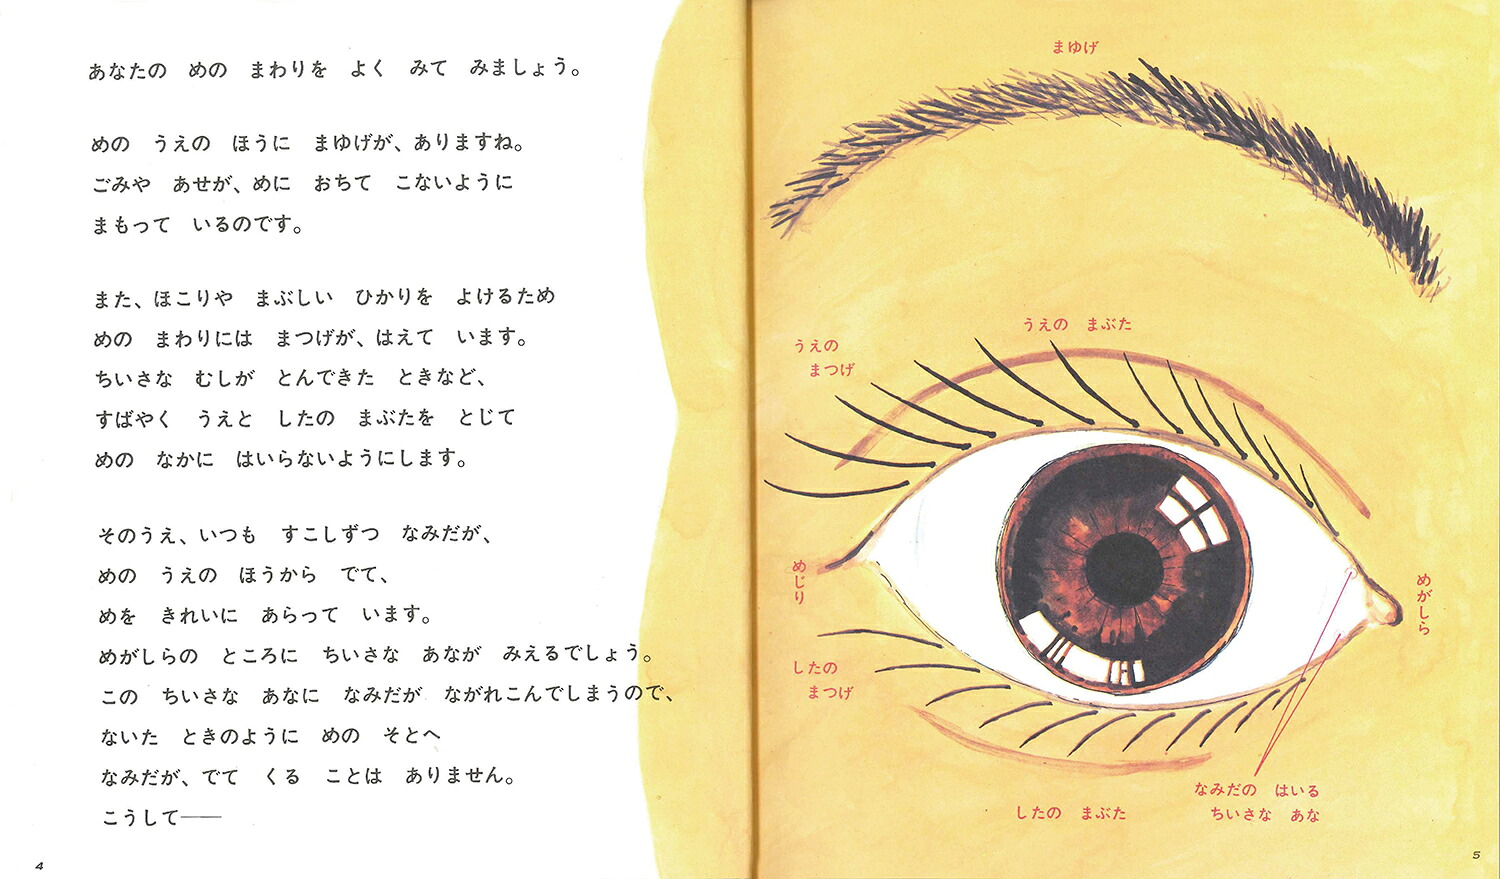 あなたの　めの　まわりを　よく　みて　みましょう。
めの　うえの　ほうに　まゆげが、ありますね。
ごみや　あせが、めに　おちて　こないように
まもって　いるのです。
また、ほこりや　まぶしい　ひかりを　よけるため
めの　まわりには　まつげが、はえて　います。
ちいさな　むしが　とんできた　ときなど、
すばやく　うえと　したの　まぶたを　とじて
めの　なかに　はいらないようにします。
そのうえ、いつも　すこしずつ　なみだが、
めの　うえの　ほうから　でて、
めを　きれいに　あらって　います。
めがしらの　ところに　ちいさな　あなが　みえるでしょう。
この　ちいさな　あなに　なみだが　ながれこんでしまうので、
ないた　ときのように　めの　そとへ
なみだが、でて　くる　ことは　ありません。
こうして——
4
まゆげ
うえの　まぶた
うえの
まつげ
めじり
めがしら
したの
まつげ
なみだの　はいる
ちいさな　あな
したの　まぶた
5